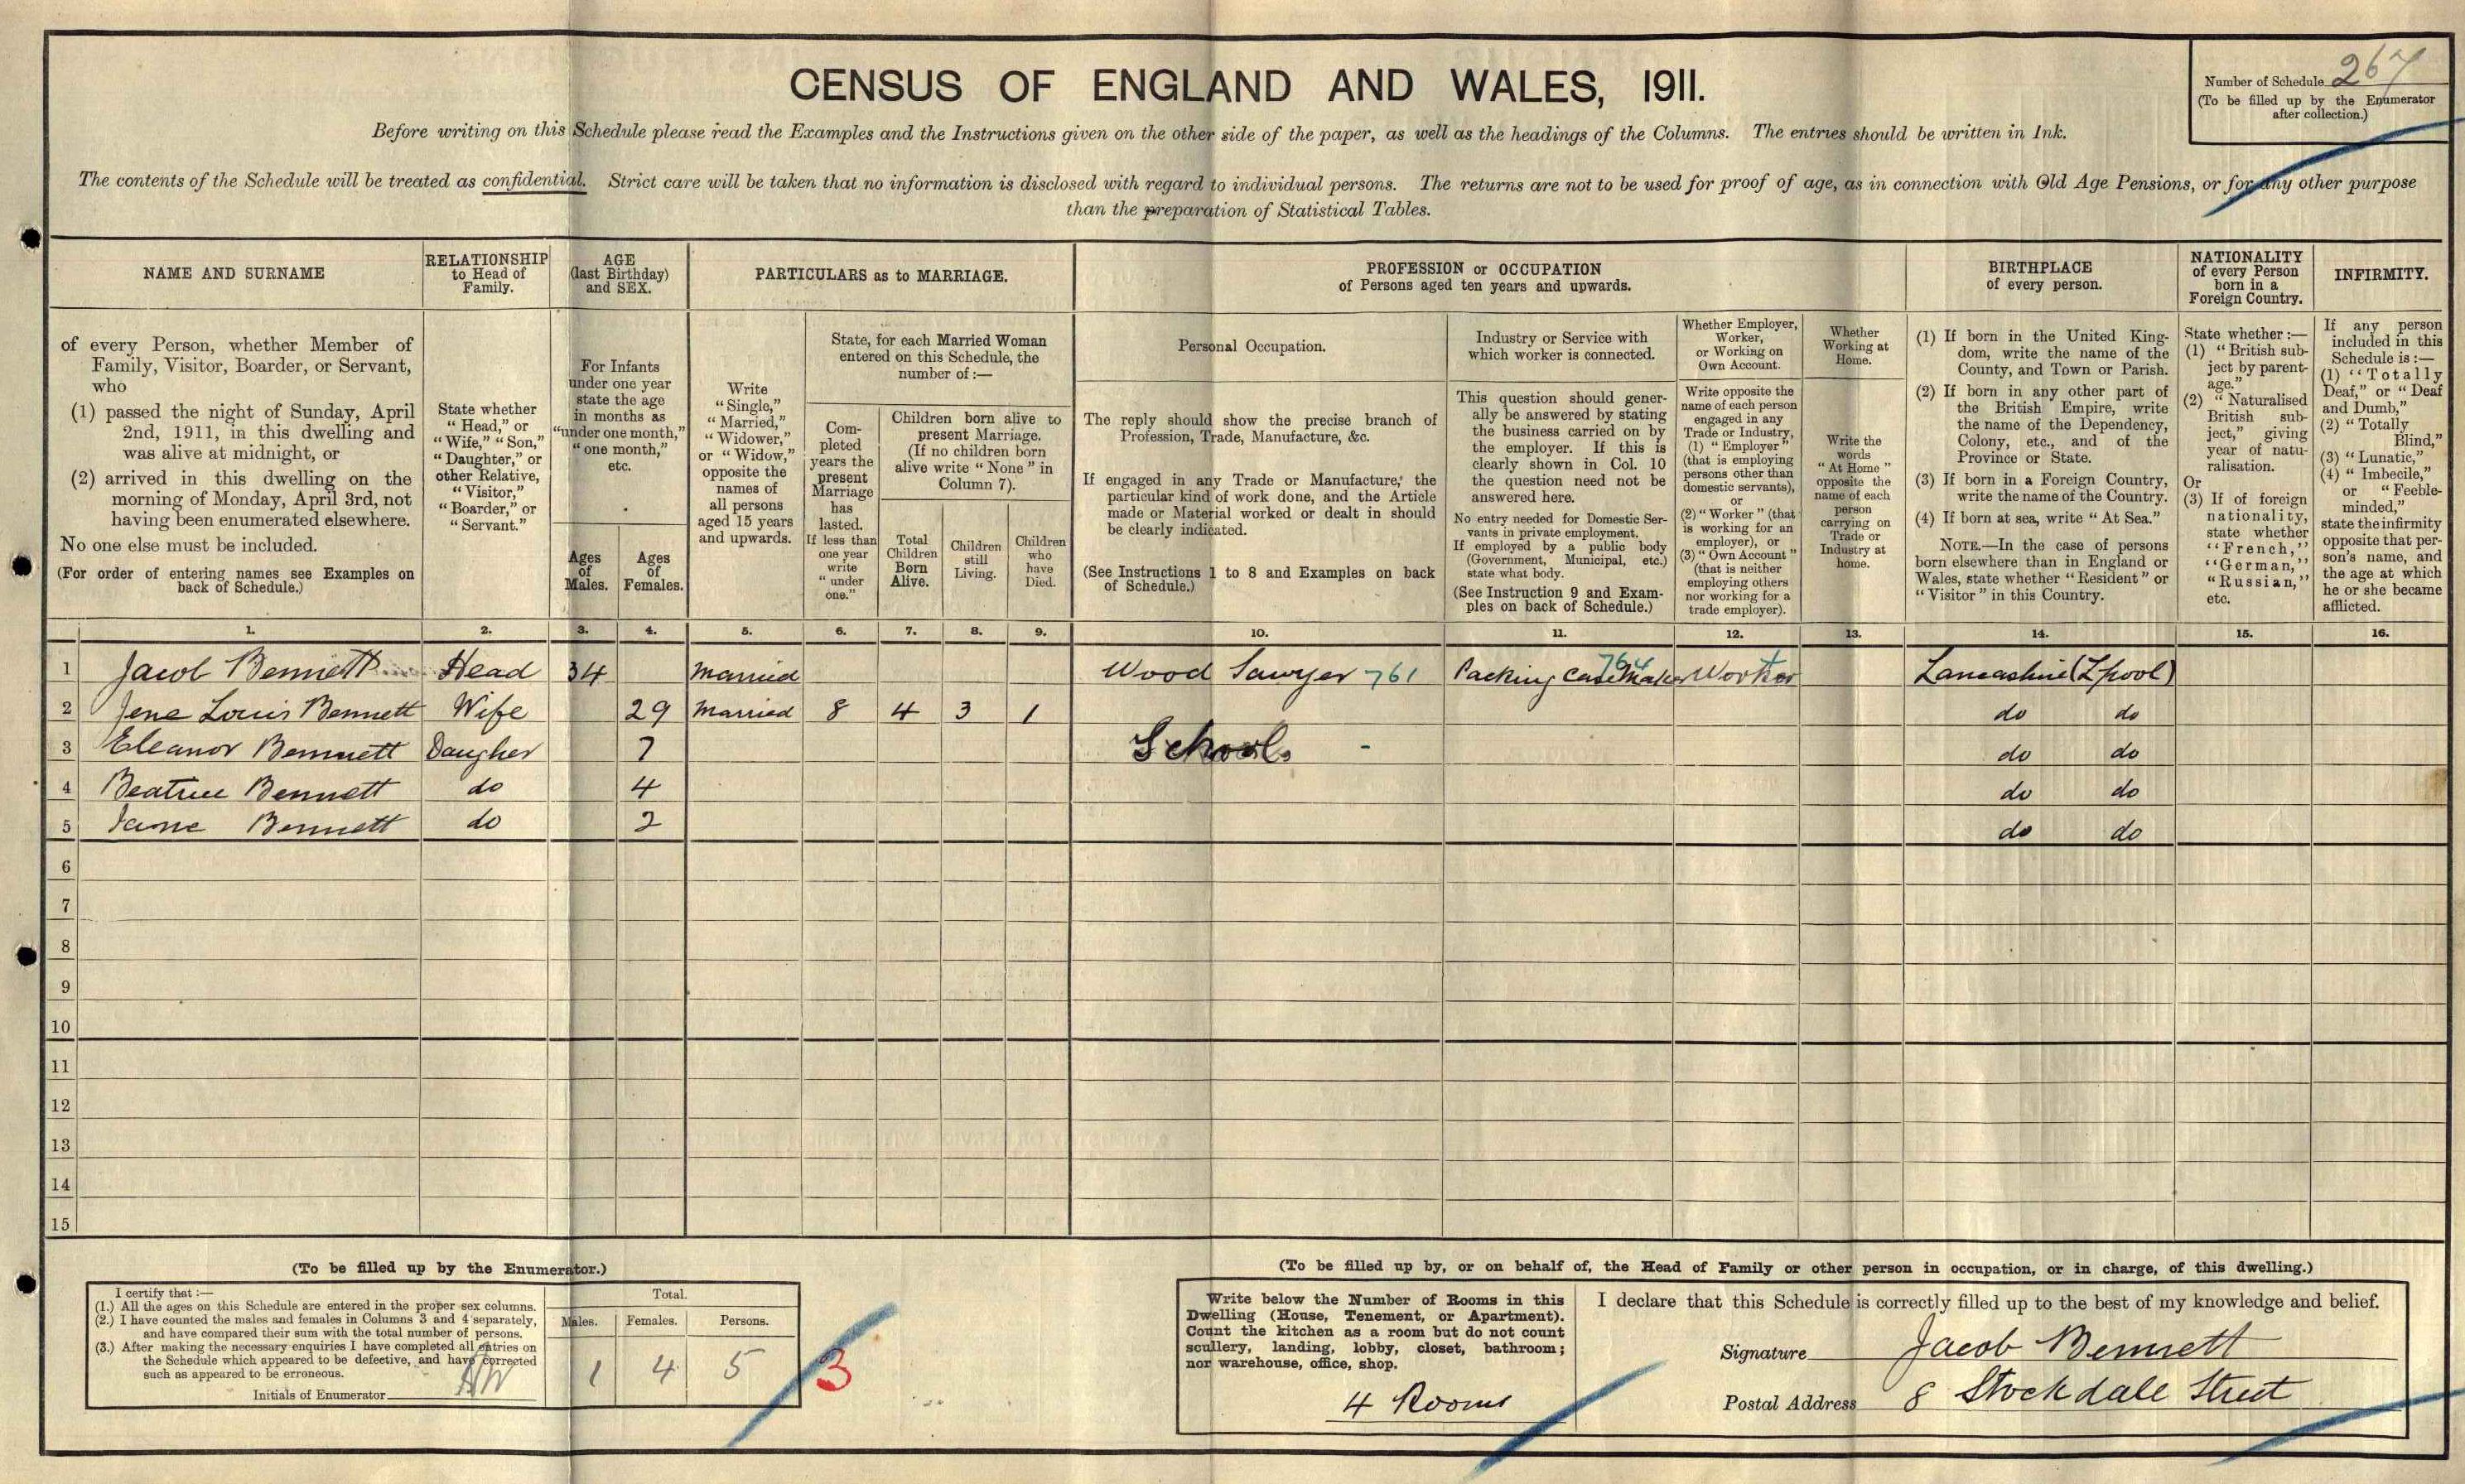 CENSUS OF ENGLAND AND WALES, 1911.
Number of Schedule 267
(To be filled up by the Enumerator
after collection.)
Before writing on this Schedule please read the Examples and the Instructions given on the other side of the paper, as well as the headings of the Columns. The entries should be written in Ink.
The contents of the Schedule will be treated as confidential. Strict care will be taken that no information is disclosed with regard to individual persons. The returns are not to be used for proof of age, as in connection with Old Age Pensions, or for any other purpose
than the preparation of Statistical Tables.
NAME AND SURNAME
of every Person, whether Member of
Family, Visitor, Boarder, or Servant,
who
(1) passed the night of Sunday, April
2nd, 1911, in this dwelling and
was alive at midnight, or
(2) arrived in this dwelling on the
morning of Monday, April 3rd, not
having been enumerated elsewhere.
No one else must be included.
(For order of entering names see Examples on
back of Schedule.)
RELATIONSHIP
to Head of
Family.
State whether
"Head," or
"Wife," "Son,"
"Daughter," or
other Relative,
"Visitor,"
"Boarder," or
"Servant."
AGE
(last Birthday)
and SEX.
For Infants
under one year
state the age
in months as
"under one month,"
"one month,"
etc.
Ages
of
Males.
Ages
of
Females.
PARTICULARS as to MARRIAGE.
Write
"Single,"
"Married,"
"Widower,"
or "Widow,"
opposite the
names of
all persons
aged 15 years
and upwards.
State, for each Married Woman
entered on this Schedule, the
number of :—
Com-
pleted
years the
present
Marriage
has
lasted.
If less than
one year
write
"under
one."
Children born alive to
present Marriage.
(If no children born
alive write "None" in
Column 7).
Total
Children
Born
Alive.
Children
still
Living.
Children
who
have
Died.
PROFESSION or OCCUPATION
of Persons aged ten years and upwards.
Personal Occupation.
The reply should show the precise branch of
Profession, Trade, Manufacture, &c.
If engaged in any Trade or Manufacture, the
particular kind of work done, and the Article
made or Material worked or dealt in should
be clearly indicated.
(See Instructions 1 to 8 and Examples on back
of Schedule.)
Industry or Service with
which worker is connected.
This question should gener-
ally be answered by stating
the business carried on by
the employer. If this is
clearly shown in Col. 10
the question need not be
answered here.
No entry needed for Domestic Ser-
vants in private employment.
If employed by a public body
(Government, Municipal, etc.)
state what body.
(See Instruction 9 and Exam-
ples on back of Schedule.)
Whether Employer,
Worker,
or Working on
Own Account.
Write opposite the
name of each person
engaged in any
Trade or Industry,
(1) "Employer"
(that is employing
persons other than
domestic servants),
or
(2) "Worker" (that
is working for an
employer), or
(3) "Own Account"
(that is neither
employing others
nor working for a
trade employer).
Whether
Working at
Home.
Write the
words
"At Home"
opposite the
name of each
person
carrying on
Trade or
Industry at
home.
BIRTHPLACE
of every person.
(1) If born in the United King-
dom, write the name of the
County, and Town or Parish.
(2) If born in any other part of
the British Empire, write
the name of the Dependency,
Colony, etc., and of the
Province or State.
(3) If born in a Foreign Country,
write the name of the Country.
(4) If born at sea, write "At Sea."
NOTE.—In the case of persons
born elsewhere than in England or
Wales, state whether "Resident" or
"Visitor" in this Country.
NATIONALITY
of every Person
born in a
Foreign Country.
State whether :—
(1) "British sub-
ject by parent-
age."
(2) "Naturalised
British sub-
ject," giving
year of natu-
ralisation.
Or
(3) If of foreign
nationality,
state whether
"French,"
"German,"
"Russian,"
etc.
INFIRMITY.
If any person
included in this
Schedule is :—
(1) "Totally
Deaf," or "Deaf
and Dumb,"
(2) "Totally
Blind,"
(3) "Lunatic,"
(4) "Imbecile,"
or "Feeble-
minded,"
state the infirmity
opposite that per-
son's name, and
the age at which
he or she became
afflicted.
1. 2. 3. 4. 5. 6. 7. 8. 9. 10. 11. 12. 13. 14. 15. 16.
1 Jacob Bennett Head 34 Married Wood Sawyer 761 Packing Case Maker 764 Worker Lancashire (Lpool)
2 Jene Louis Bennett Wife 29 Married 8 4 3 1 do do
3 Eleanor Bennett Daugher 7 School - do do
4 Beatrice Bennett do 4 do do
5 Jane Bennett do 2 do do
6
7
8
9
10
11
12
13
14
15
(To be filled up by the Enumerator.)
I certify that :—
(1.) All the ages on this Schedule are entered in the proper sex columns.
(2.) I have counted the males and females in Columns 3 and 4 separately,
and have compared their sum with the total number of persons.
(3.) After making the necessary enquiries I have completed all entries on
the Schedule which appeared to be defective, and have corrected
such as appeared to be erroneous.
Initials of Enumerator
Total.
Males. Females. Persons.
1 4 5
3
(To be filled up by, or on behalf of, the Head of Family or other person in occupation, or in charge, of this dwelling.)
Write below the Number of Rooms in this
Dwelling (House, Tenement, or Apartment).
Count the kitchen as a room but do not count
scullery, landing, lobby, closet, bathroom;
nor warehouse, office, shop.
4 Rooms
I declare that this Schedule is correctly filled up to the best of my knowledge and belief.
Signature Jacob Bennett
Postal Address 8 Stockdale Street